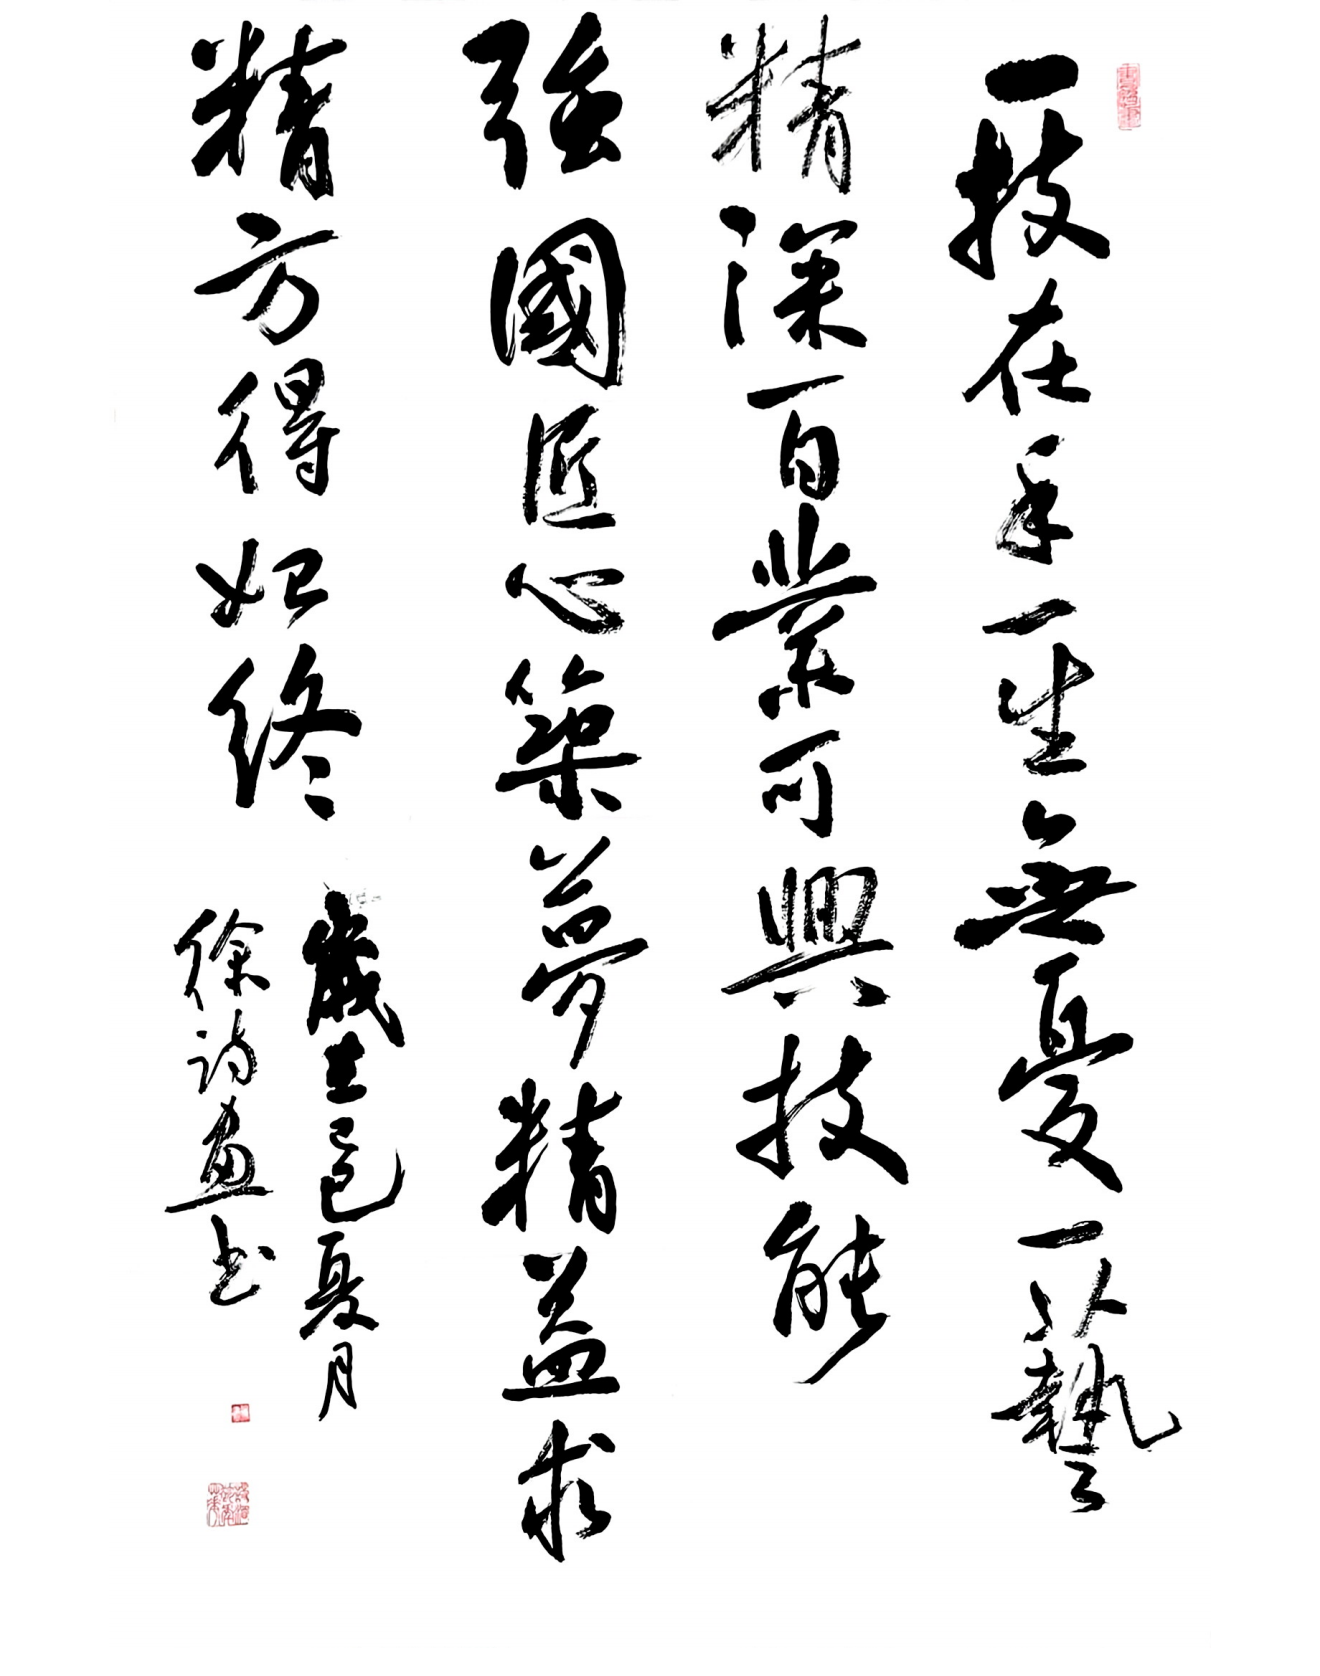 一技在手一生無憂一藝
精深百業可興技能
強國匠心築夢精益求
精方得始終
歲在乙巳夏月
徐詩畫书